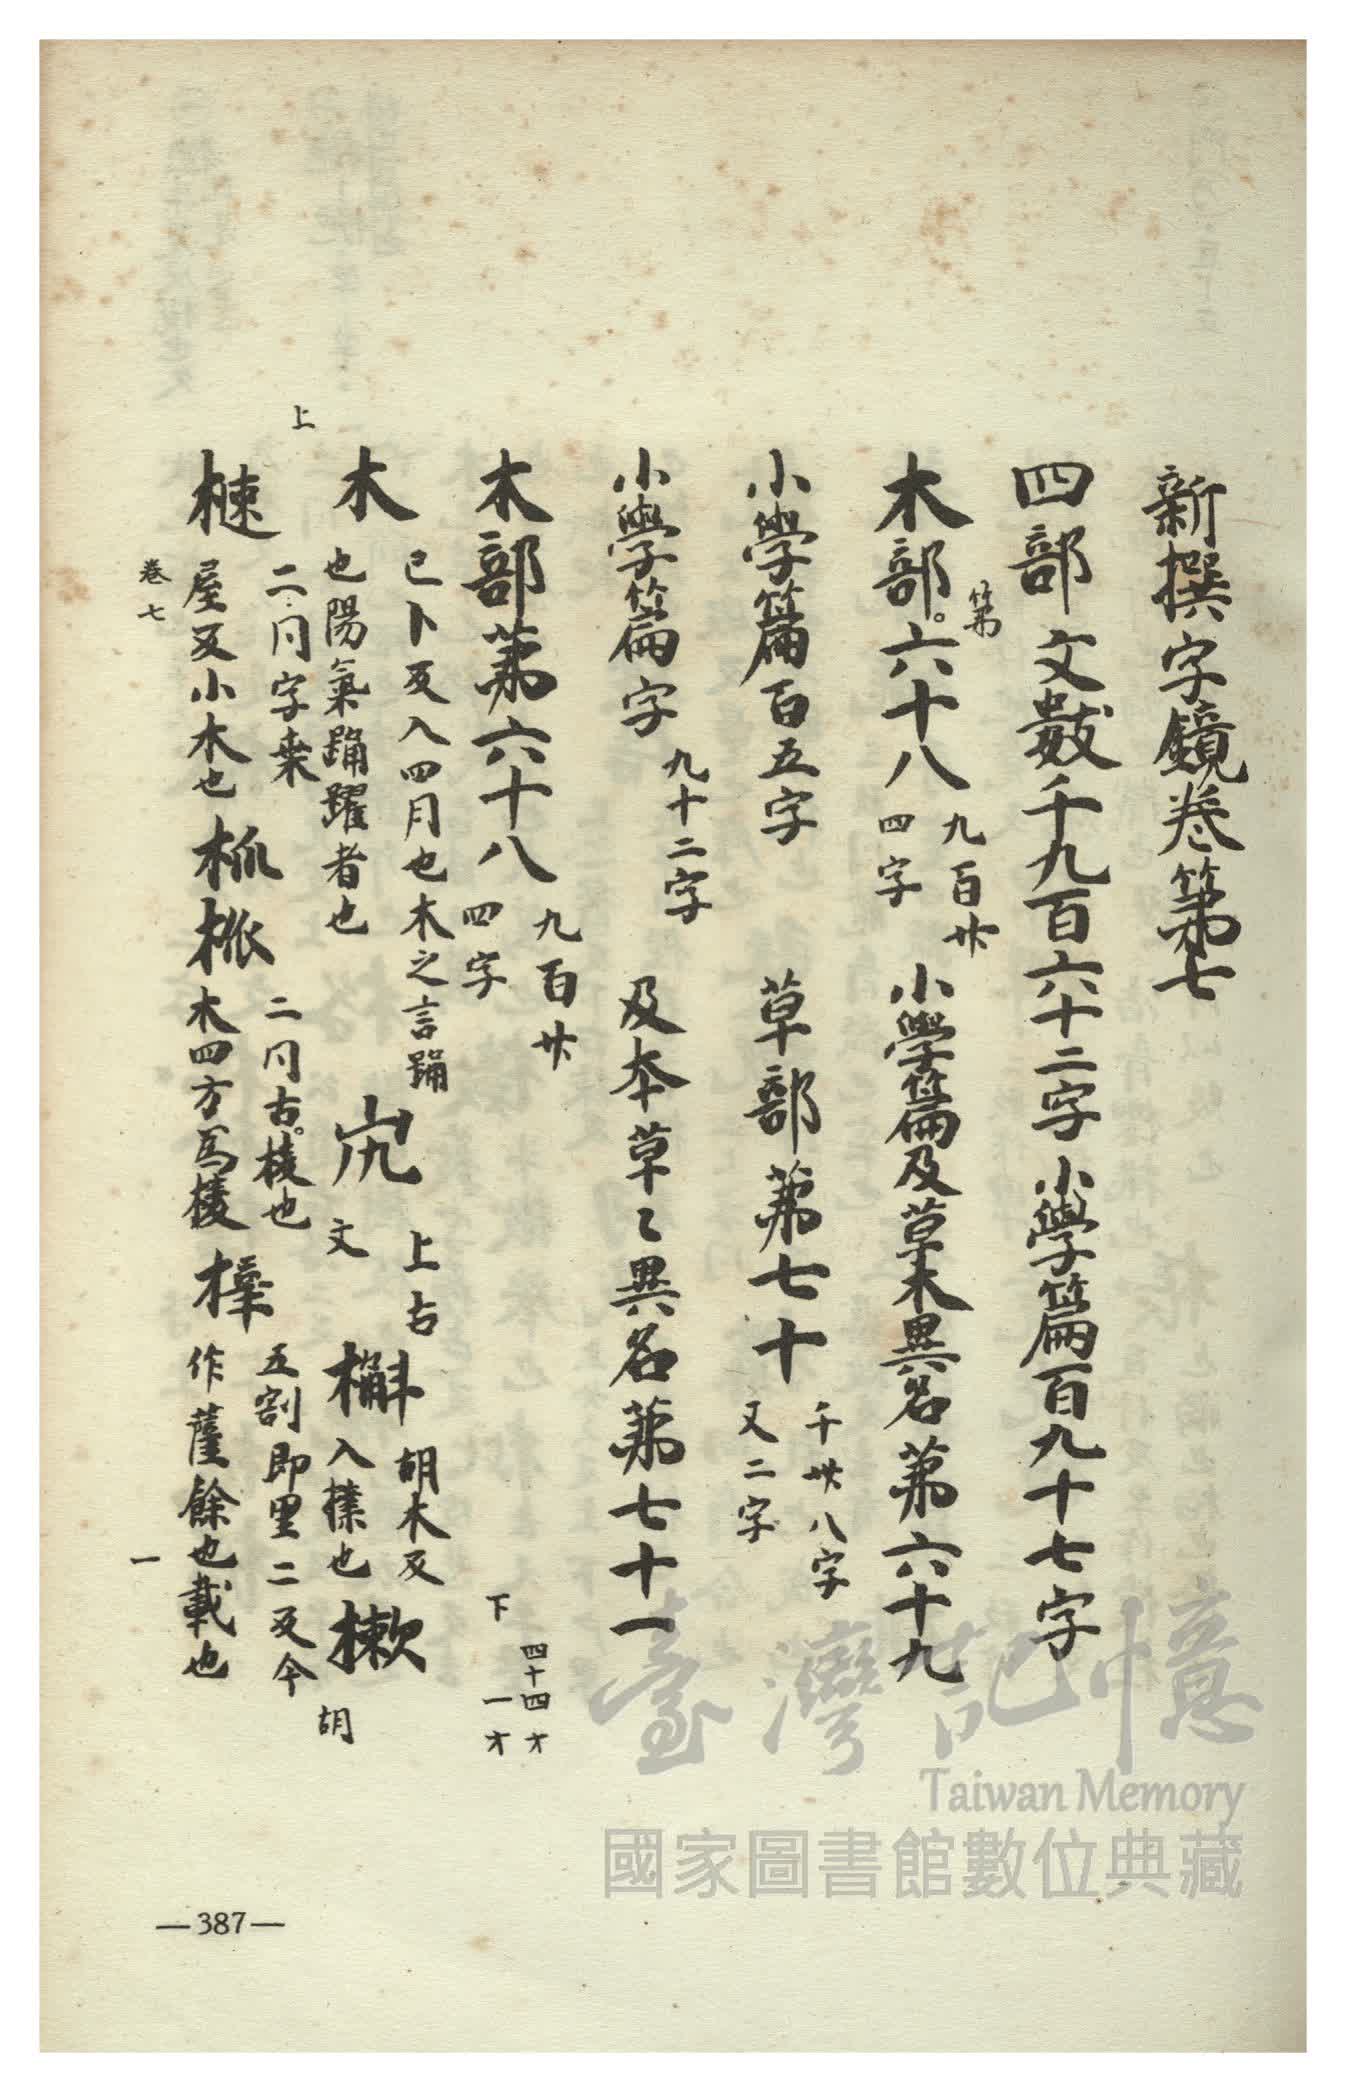 新撰字鏡卷第七
四部文數千九百六十二字 小學篇百九十七字
木部。六十八 九百卅四字 小學篇及草木異名第六十九
第
小學篇百五字 草部第七十 千卅八字又二字
小學篇字 九十二字 及本草〻異名第七十一
木部第六十八 九百卅四字 下 四十四才一才
木 己卜反入四月也木之言踊也陽氣踊躍者也 上古文 槲 胡木反入樸也 樕 胡
上
梀 二同字来屋反小木也 二同古。棱也木四方爲棱 五割即里二反今作蘆餘也載也
卷七
一
—387—
臺灣記憶
Taiwan Memory
國家圖書館數位典藏